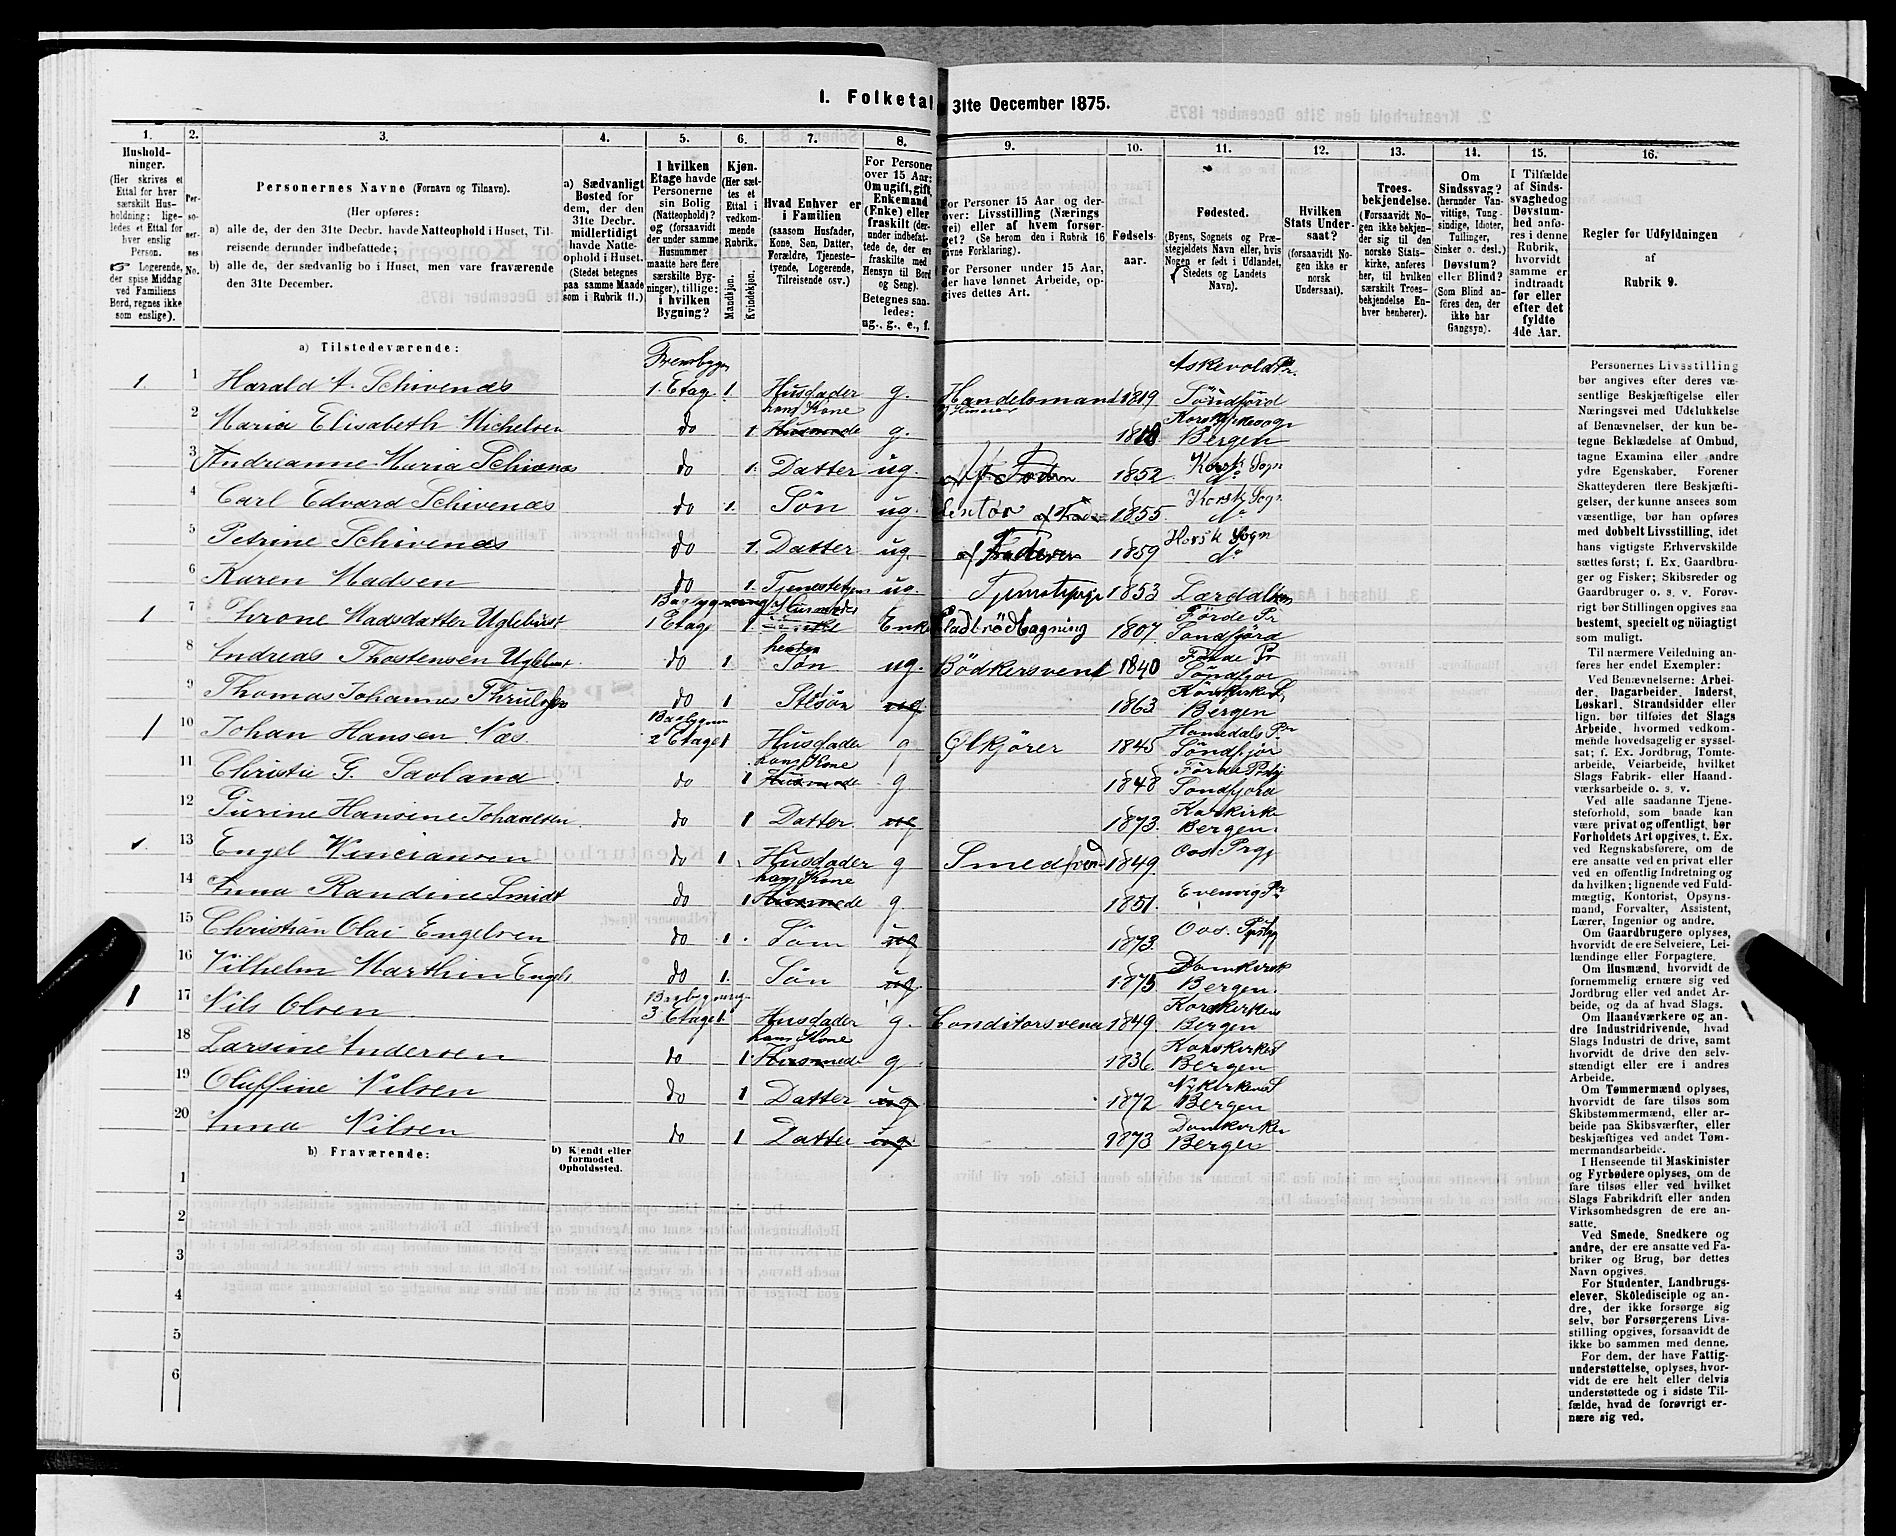 1. Folketal 31te December 1875.
1. 2. 3. 4. 5. 6. 7. 8. 9. 10. 11. 12. 13. 14. 15. 16.
Husholdninger. (Her skrives et Ettal for hver særskilt Husholdning; ligeledes et Ettal for hver enslig Person. Logerende, der spise Middag ved Familiens Bord, regnes ikke som enslige).
Personernes No.
Personernes Navne (Fornavn og Tilnavn).
(Her opføres:
a) alle de, der den 31te Decbr. havde Natteophold i Huset, Tilreisende derunder indbefattede;
b) alle de, der sædvanlig bo i Huset, men vare fraværende den 31te December.
a) Sædvanligt Bosted for dem, der den 31te Decbr. midlertidigt havde Natteophold i Huset. (Stedet betegnes paa samme Maade som i Rubrik 11.)
I hvilken Etage havde Personerne sin Bolig (Natteophold)? og (forsaavidt der under samme Husnummer maatte høre flere særskilte Bygninger), tillige: i hvilken Bygning?
Kjøn. (Her sættes et Ettal i vedkommende Rubrik.
Mandkjøn. Kvindekjøn.
Hvad Enhver er i Familien (saasom Husfader, Kone, Søn, Datter, Forældre, Tjenestetyende, Logerende, Tilreisende osv.)
For Personer over 15 Aar: Om ugift, gift, Enkemand (Enke) eller fraskilt (derunder indbefattede de, der ere fraskilte med Hensyn til Bord og Seng). Betegnes saaledes: ug., g., e., f.
For Personer 15 Aar og derover: Livsstilling (Nærings vei) eller af hvem forsørget? (Se herom den i Rubrik 16 givne Forklaring). For Personer under 15 Aar, der have lønnet Arbeide, opgives dettes Art.
Fødselsaar.
Fødested. (Byens, Sognets og Præstegjeldets Navn eller, hvis Nogen er født i Udlandet, Stedets og Landets Navn).
Hvilken Stats Undersaat? (forsaavidt Nogen ikke er norsk Undersaat).
Troesbekjendelse. (Forsaavidt Nogen ikke bekjender sig til den norske Statskirke, anføres her, til hvilken særskilt Troesbekjendelse Enhver henhører).
Om Sindssvag? (herunder Vanvittige, Tungsindige, Idioter, Tullinger, Sinker o. desl.) Døvstum? eller Blind? (Som Blind anføres den, der ikke har Gangsyn).
I Tilfælde af Sindssvaghed og Døvstumhed anføres i denne Rubrik, hvorvidt samme er indtraadt før eller efter det fyldte 4de Aar.
Regler for Udfyldningen af Rubrik 9.
a) Tilstedeværende:
1 1 Harald A. Schivenæs 1. Etage 1. Husfader g. Handelsmand 1819 Askevold Pr. Søndfjord
2 Maria Elisabeth Michelsen do 1 hans Kone g. 1818 Bergen
3 Andreanne Maria Schivenæs do 1. Datter ug. 1852 Korsk Sogn do
4 Carl Edvard Schivenæs do 1. Søn ug. 1855 Korsk Sogn do
5 Petrine Schivenæs do 1. Datter ug. 1859 Korsk Sogn do
6 Karen Madsen do 1. ug. 1853
1 7 Throne Madsdatter Uglehust Bagbygning 1 Etage 1 Enke 1807 Førde Pr Søndfjord
8 Andreas Thostensen do 1 hendes Søn ug. Bødkersvend 1840 Førde Pr Søndfjor
9 Thomas Johannes do 1 ug. 1863 Bergen
1 10 Johan Hansen Næs. 2 Etage 1 Husfader g Ølkjører 1845 Søndfjor
11 Christie G. Savland do 1 hans Kone g 1848 Søndfjord
12 Gurine Hansine Johansen do 1 Datter ug 1873. Korskirke Bergen.
1. 13 Engel Vinciansen do 1 Husfader g Smedsvend 1849. Oos
14 Anna Randine Smidt do 1 hans Kone g 1851. Evenvig Pr
15 Christian Olai Engelsen do 1 Søn ug 1873. Oos
16 Vilhelm Marthin Engels do 1. Søn ug 1875 Domkirk Bergen.
1 17 Nils Olsen Bagbygning 3 Etage 1. Husfader g. Conditorsvend 1849. Korskirkens Bergen
18 Larsine Andersen do 1 hans Kone g 1836. Korskirke S Bergen
19 Oluffine Nilsen do 1 Datter ug. 1872 Nykirkens S Bergen
20 Anna Nilsen do 1 Datter ug. 1873 Domkirke Bergen
b) Fraværende:
b) Kjendt eller formodet Opholdssted.
1
2
3
4
5
6
Personernes Livsstilling bør angives efter deres væsentlige Beskjæftigelse eller Næringsvei med Udelukkelse af Benævnelser, der kun betegne Beklædelse af Ombud, tagne Examina eller andre ydre Egenskaber. Forener Skatteyderen flere Beskjæftigelser, der kunne ansees som væsentlige, bør han opføres med dobbelt Livsstilling, idet hans vigtigste Erhvervskilde sættes først; f. Ex. Gaardbruger og Fisker; Skibsreder og Gaardbruger o. s. v. Forøvrigt bør Stillingen opgives saa bestemt, specielt og nøiagtigt som muligt.
Til nærmere Veiledning anføres her endel Exempler:
Ved Benævnelserne: Arbeider, Dagarbeider, Inderst, Løskarl, Strandsidder eller lign. bør tilføies det Slags Arbeide, hvormed vedkommende hovedsagelig er sysselsat; f. Ex. Jordbrug, Tomtearbeide, Veiarbeide, hvilket Slags Fabrik- eller Haandværksarbeide o. s. v.
Ved alle saadanne Tjenesteforhold, som baade kan være privat og offentligt, bør Forholdets Art opgives, t. Ex. ved Regnskabsførere, om de ere ansatte ved en privat eller ved en offentlig Indretning og da hvilken; lignende ved Fuldmægtig, Kontorist, Opsynsmand, Forvalter, Assistent, Lærer, Ingeniør og andre.
Om Gaardbrugere oplyses, hvorvidt de ere Selveiere, Leilændinge eller Forpagtere.
Om Husmænd, hvorvidt de fornemmelig ernære sig ved Jordbrug eller ved andet Arbeide, og da af hvad Slags.
Om Haandværkere og andre Industridrivende, hvad Slags Industri de drive, samt hvorvidt de drive den selvstændigt eller ere i andres Arbeide.
Om Tømmermænd oplyses, hvorvidt de fare tilsøs som Skibstømmermænd, eller arbeide paa Skibsværfter, eller beskjæftiges ved andet Tømmermandsarbeide.
I Henseende til Maskinister og Fyrbødere oplyses, om de fare tilsøs eller ved hvilket Slags Fabrikdrift eller anden Virksomhedsgren de ere ansatte.
Ved Smede, Snedkere og andre, der ere ansatte ved Fabriker og Brug, bør dettes Navn opgives.
For Studenter, Landbrugselever, Skoledisciple og andre, der ikke forsørge sig selv, bør Forsørgerens Livsstilling opgives, forsaavidt de ikke bo sammen med denne.
For dem, der have Fattigunderstøttelse, oplyses, hvorvidt de ere helt eller delvis understøttede og i sidste Tilfælde, hvad de forøvrigt ernære sig ved.